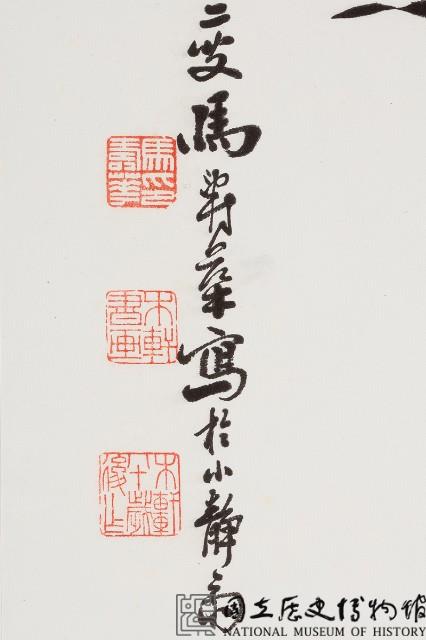 二叟馬壽華寫於小靜齋
馬壽華印
木軒書画
木軒
國立歷史博物館
NATIONAL MUSEUM OF HISTORY